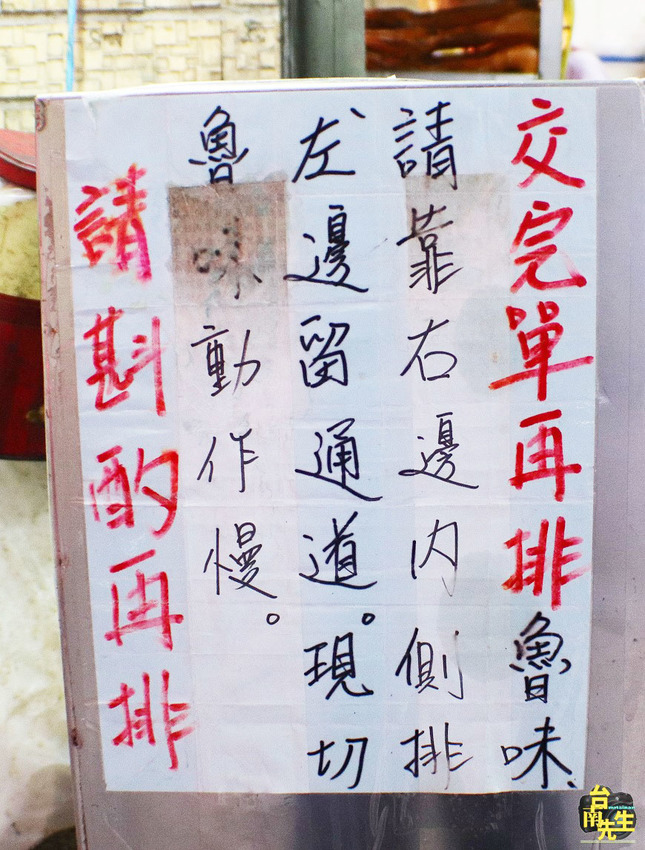 交完單再排魯味、
請靠右邊內側排
左邊留通道。現切
魯味動作慢。
請斟酌再排
台南先生